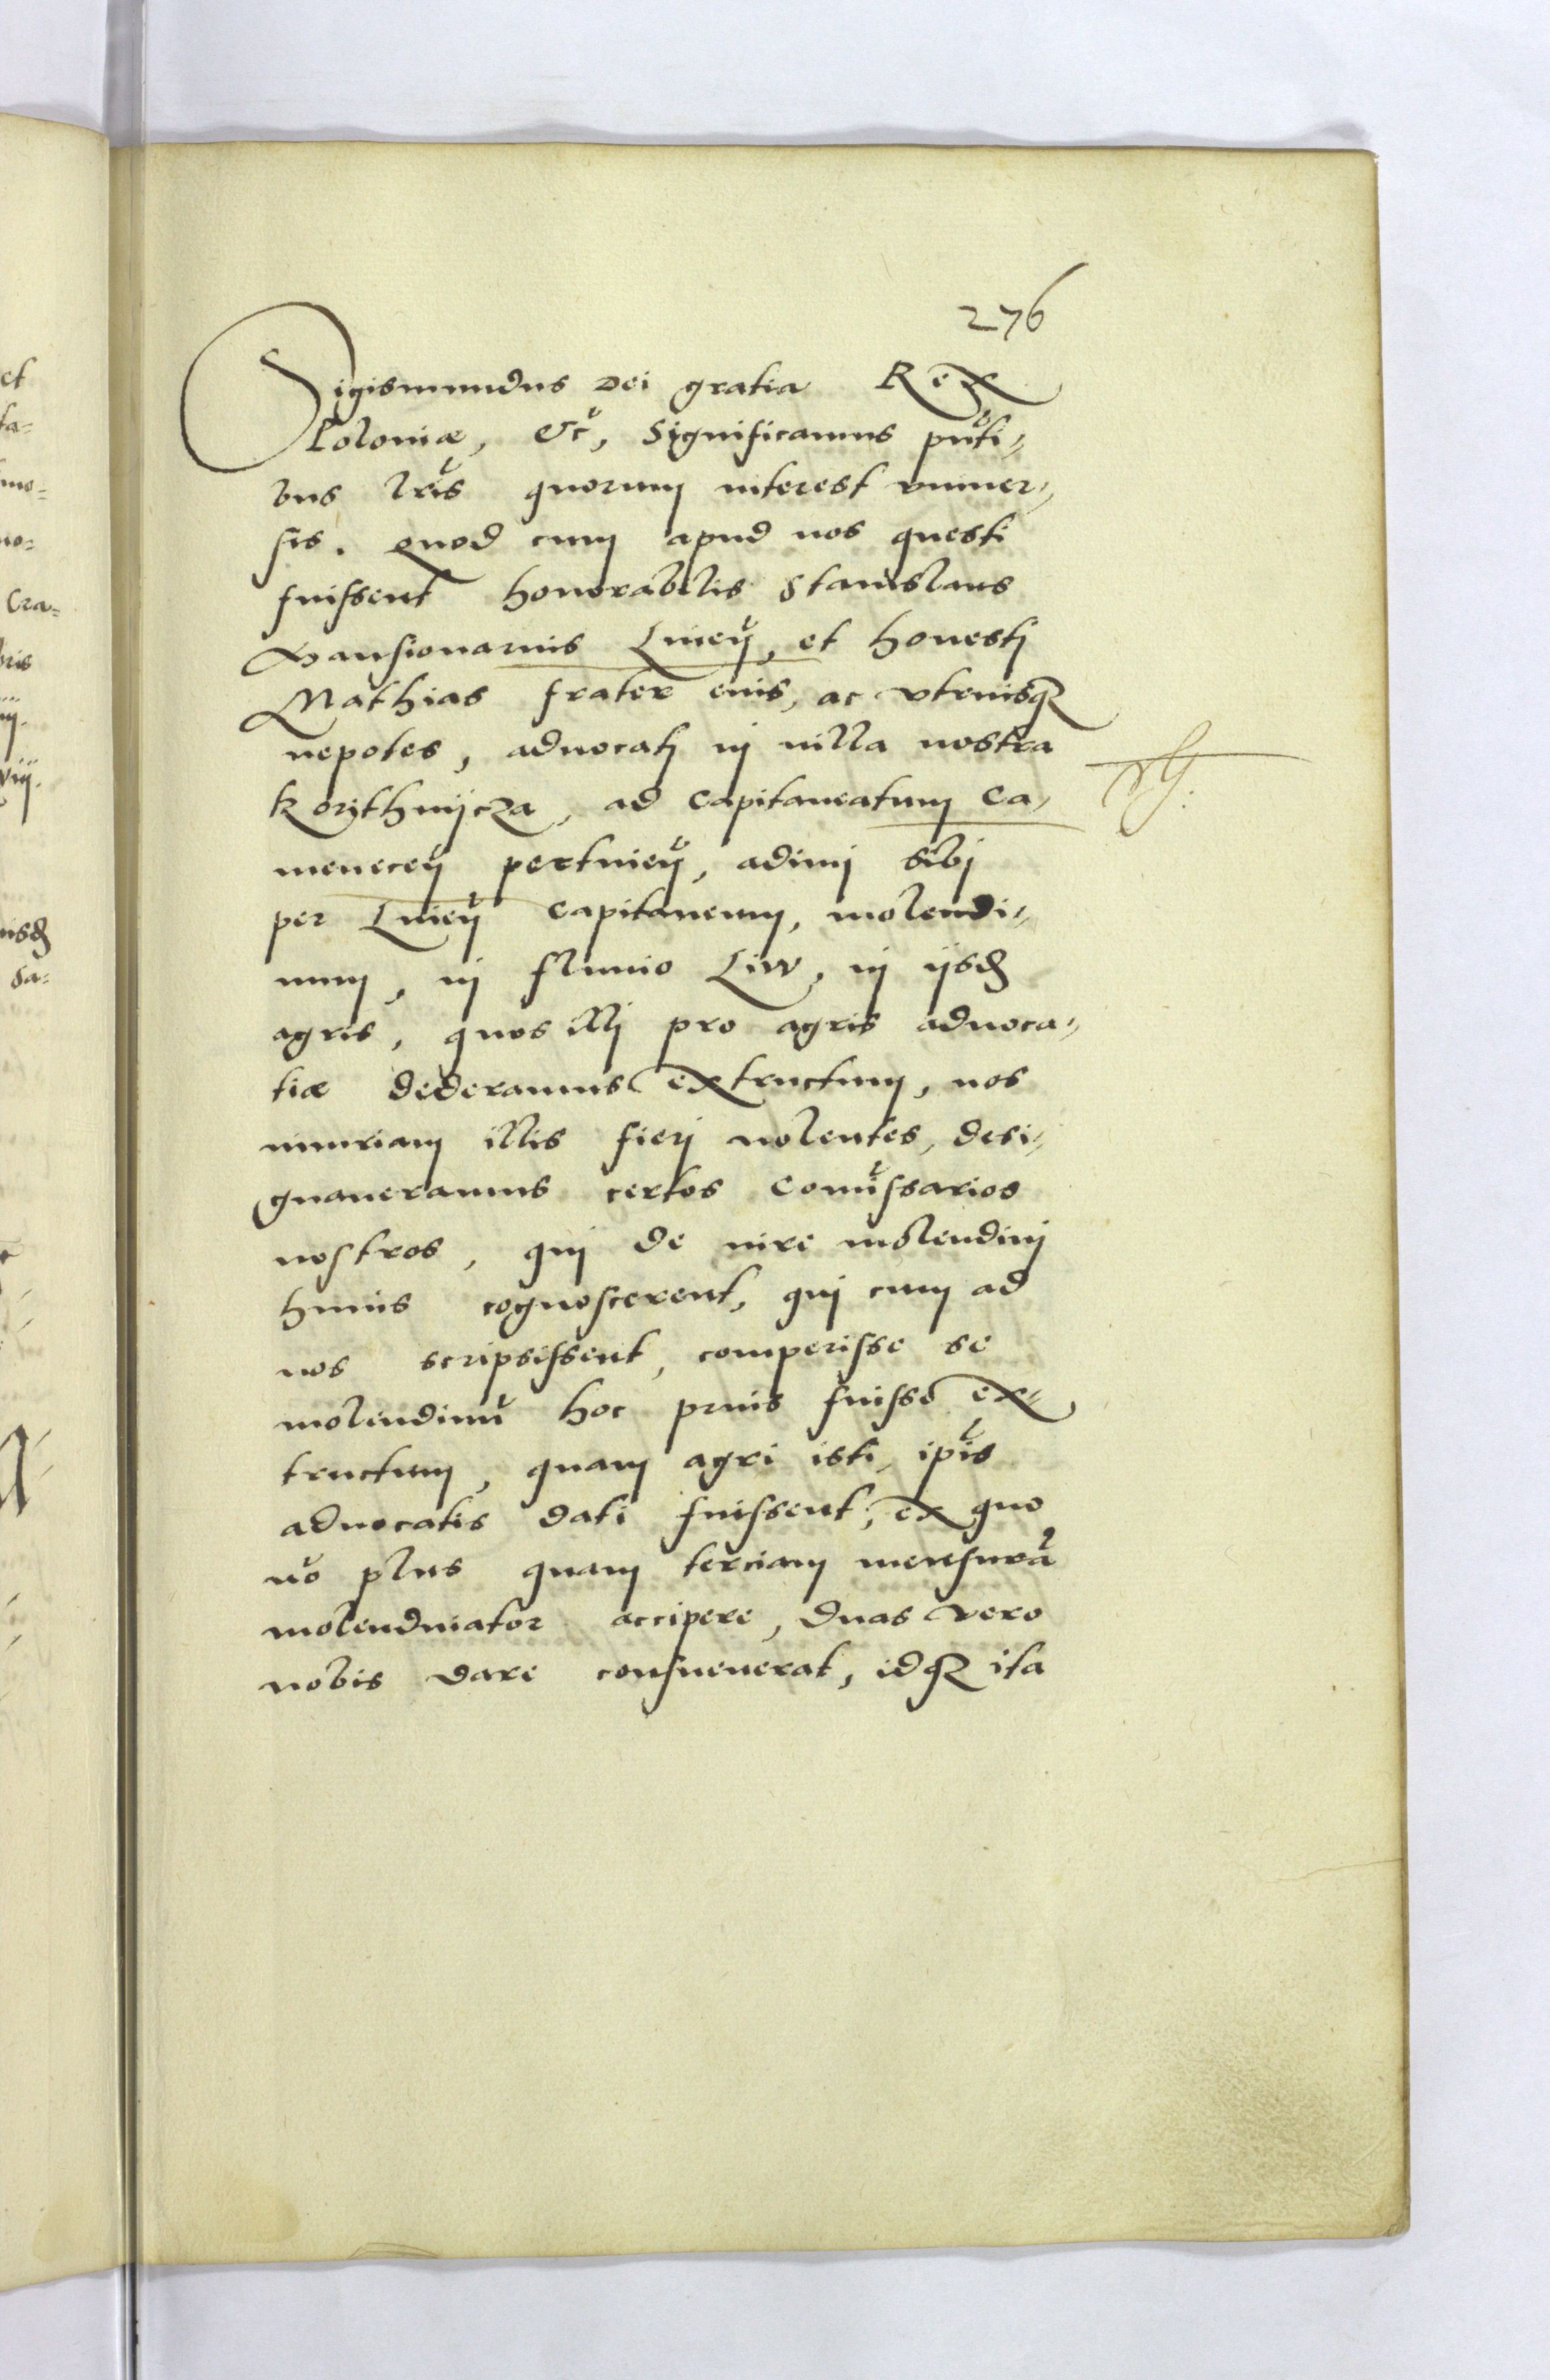 276
Sigismundus Dei gratia Rex
Poloniæ, &c̃, Significamus pñti-
bus lr̃is quorum interest vniuer-
sis. Quod cum apud nos questi
fuissent honorabilis Stanislaus
Mansionarius Liueñ, et honesti
Mathias frater eius, ac vtriusq3
nepotes, aduocati in uilla nostra
Korythnijcza, ad Capitaneatum Ca-
meneceñ pertineñ, adimi sibi
per Liueñ Capitaneum, molendi-
num, in fluuio Liw, in ijsd
agris, quos illi pro agris aduoca-
tiæ dederamus extructum, nos
iniuriam illis fieri nolentes, desi-
gnaueramus certos Com̃issarios
nostros, qui de iure molendini
huius cognoscerent, qui cum ad
nos scripsissent, comperisse se
molendinũ hoc prius fuisse ex-
tructum, quam agri isti, ip̃is
aduocatis dati fuissent, ex quo
nõ plus quam terciam mensurã
molendinator accipere, duas vero
nobis dare consueuerat, idq3 ita
et
ta-
mo-
no-
Cra-
bris
viij.
sa-